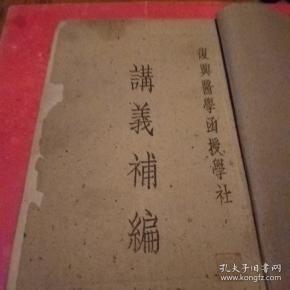 復興醫學函授學社
講義補編
孔夫子旧书网